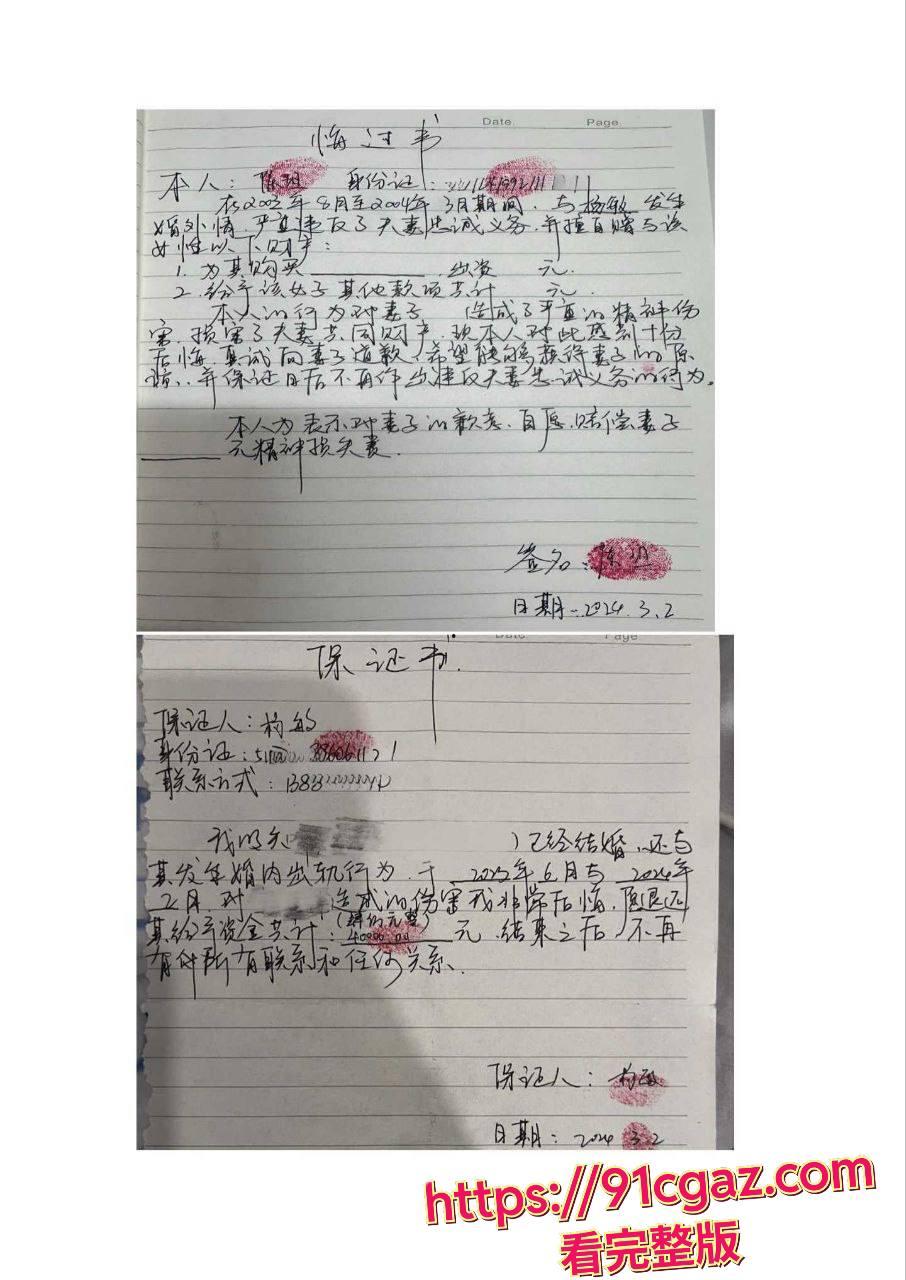 Date. Page.
悔过书
本人: 陈 身份证:
在2023年8月至2024年3月期间,与杨敏发生
婚外情,严重违反了夫妻忠诚义务,并擅自赠与该
女性以下财产:
1. 为其购买 出资 元.
2. 给予该女子其他款项共计 元.
本人的行为对妻子 造成了严重的精神伤
害,损害了夫妻共同财产,现本人对此感到十分
后悔,真诚向妻子道歉,希望能够获得妻子的原
谅,并保证日后不再作出违反夫妻忠诚义务的行为.
本人为表示对妻子的歉意,自愿赔偿妻子
元精神损失费.
签名: 陈
日期: 2024.3.2
Date Page
保证书.
保证人: 杨敏
身份证:
联系方式: 138
我明知 已经结婚,还与
其发生婚内出轨行为,于 2023年6月与 2024年
2月 对 造成的伤害我非常后悔,愿退还
其给予资金共计: 40000.00 元,结束之后,不再
有任何关系.
保证人: 杨敏
日期: 2024 3.2
https://91cgaz.com
看完整版